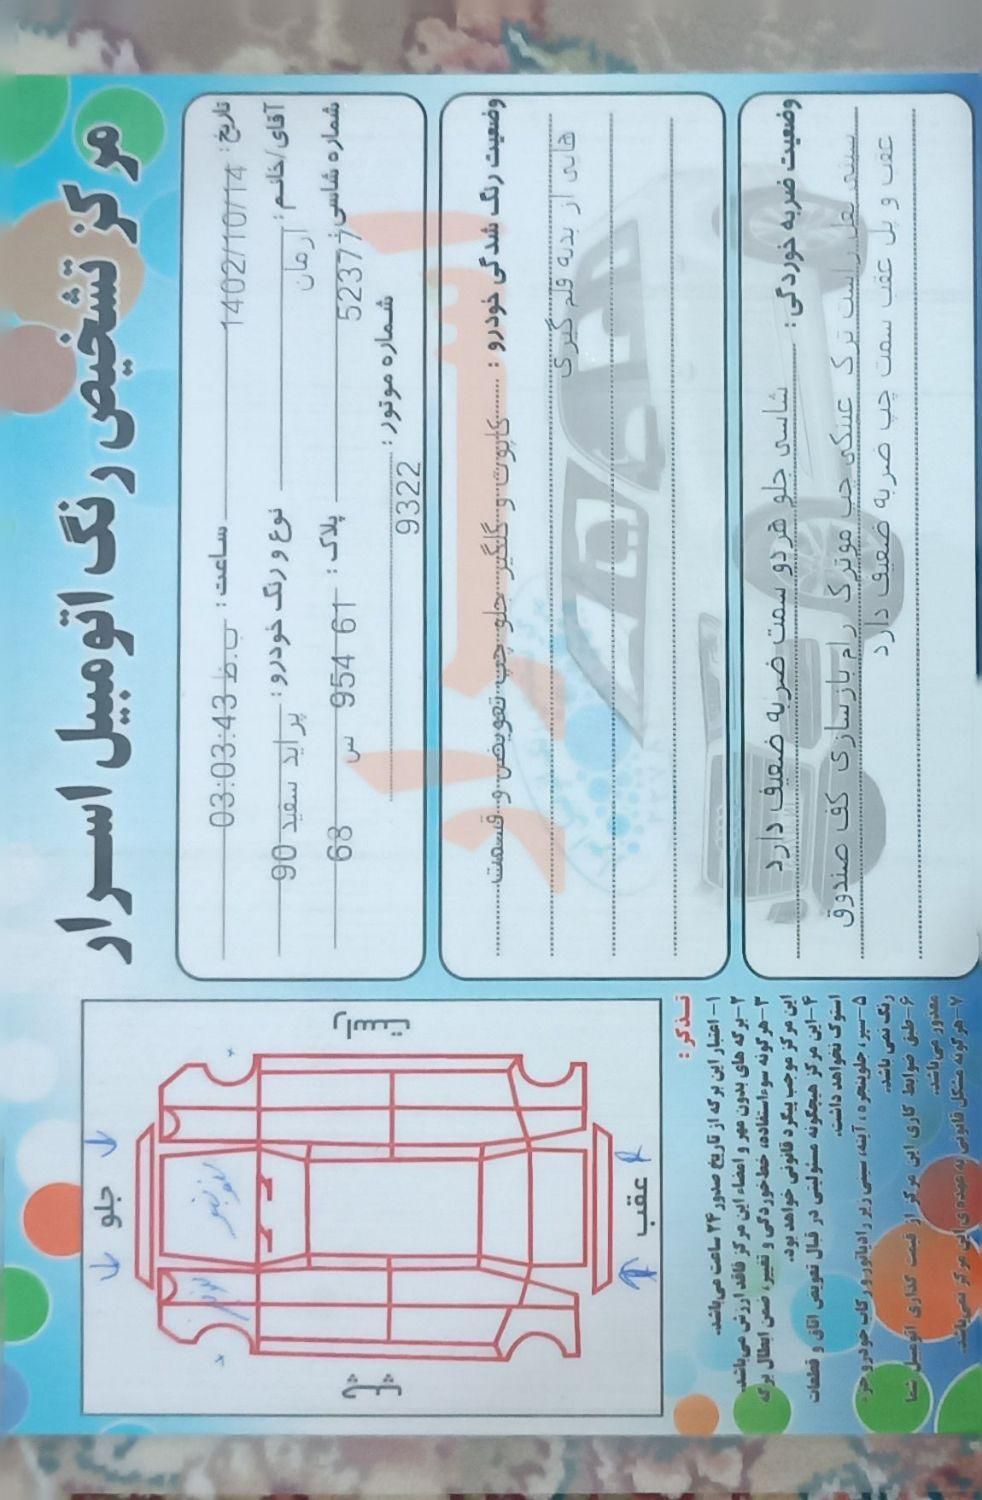 مرکز تشخیص رنگ اتومبیل اسرار
تاریخ : 1402/10/14 ساعت : 03:03:43 ب.ظ
آقای/خانم : آرمان نوع و رنگ خودرو : پراید سفید 90
شماره شاسی : 52377 پلاک : 61 954 س 68
شماره موتور : 9322
وضعیت رنگ شدگی خودرو : کاپوت و گلگیر جلو چپ تعویض و قسمت
هایی از بدنه قلم گیری
وضعیت ضربه خوردگی : شاسی جلو هر دو سمت ضربه ضعیف دارد
سینی بغل راست ترک عینکی چپ موترک رام بازسازی کف صندوق
عقب و پل عقب سمت چپ ضربه ضعیف دارد
جلو
تعویض
عقب
تذکر :
۱- اعتبار این برگه از تاریخ صدور ۲۴ ساعت می‌باشد.
۲- برگه های بدون مهر و امضاء این مرکز فاقد ارزش می‌باشد.
۳- هرگونه سوءاستفاده، خط‌خوردگی و تغییر، ضمن ابطال برگه
این مرکز موجب پیگرد قانونی خواهد بود.
۴- این مرکز هیچگونه مسئولیتی در قبال تعویض اتاق و قطعات
استوک نخواهد داشت.
۵- سپر، جلوپنجره، آینه، سینی زیر رادیاتور و رکاب خودرو جزء
رنگ نمی باشد.
۶- طبق ضوابط کاری این مرکز از قیمت گذاری اتومبیل شما
معذور می‌باشد.
۷- هرگونه مشکل قانونی به عهده‌ی این مرکز نمی‌باشد.